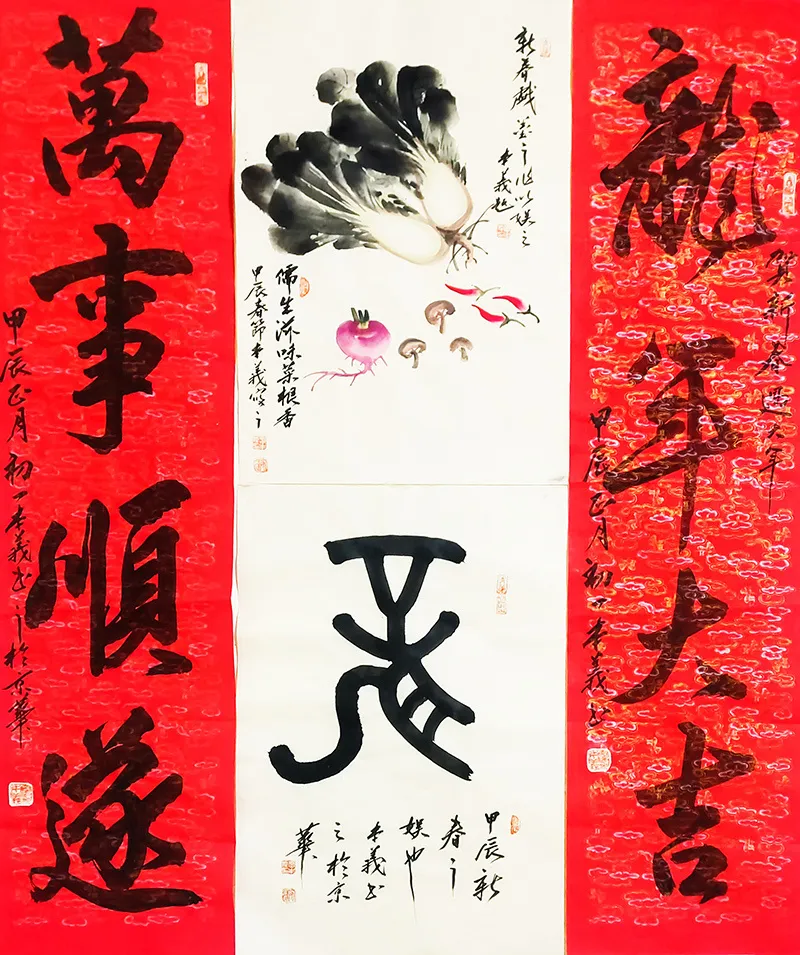 賀新春過大年
龍年大吉
甲辰正月初一本義書
新春戲墨之作以娱之
本義題
儒生滋味菜根香
甲辰春節本義寫之
龍
甲辰新
春之
娱也
本義書
之於京
華
萬事順遂
甲辰正月初一本義書之於京華